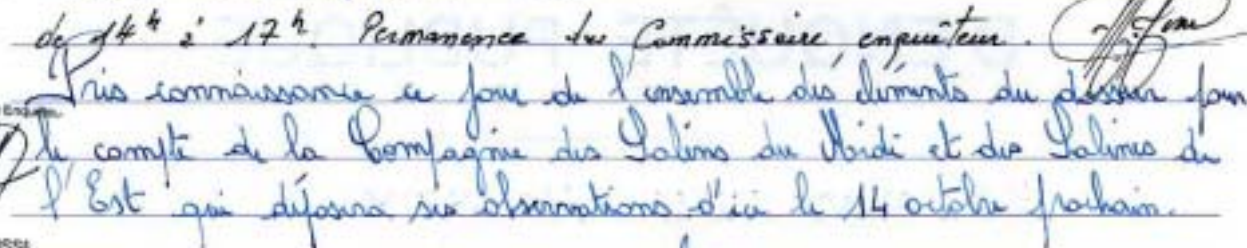 de 14h à 17h. Permanence du Commissaire enquêteur.
Pris connaissance ce jour de l'ensemble des éléments du dossier pour
le compte de la Compagnie des Salins du Midi et des Salines de
l'Est qui déposera ses observations d'ici le 14 octobre prochain.